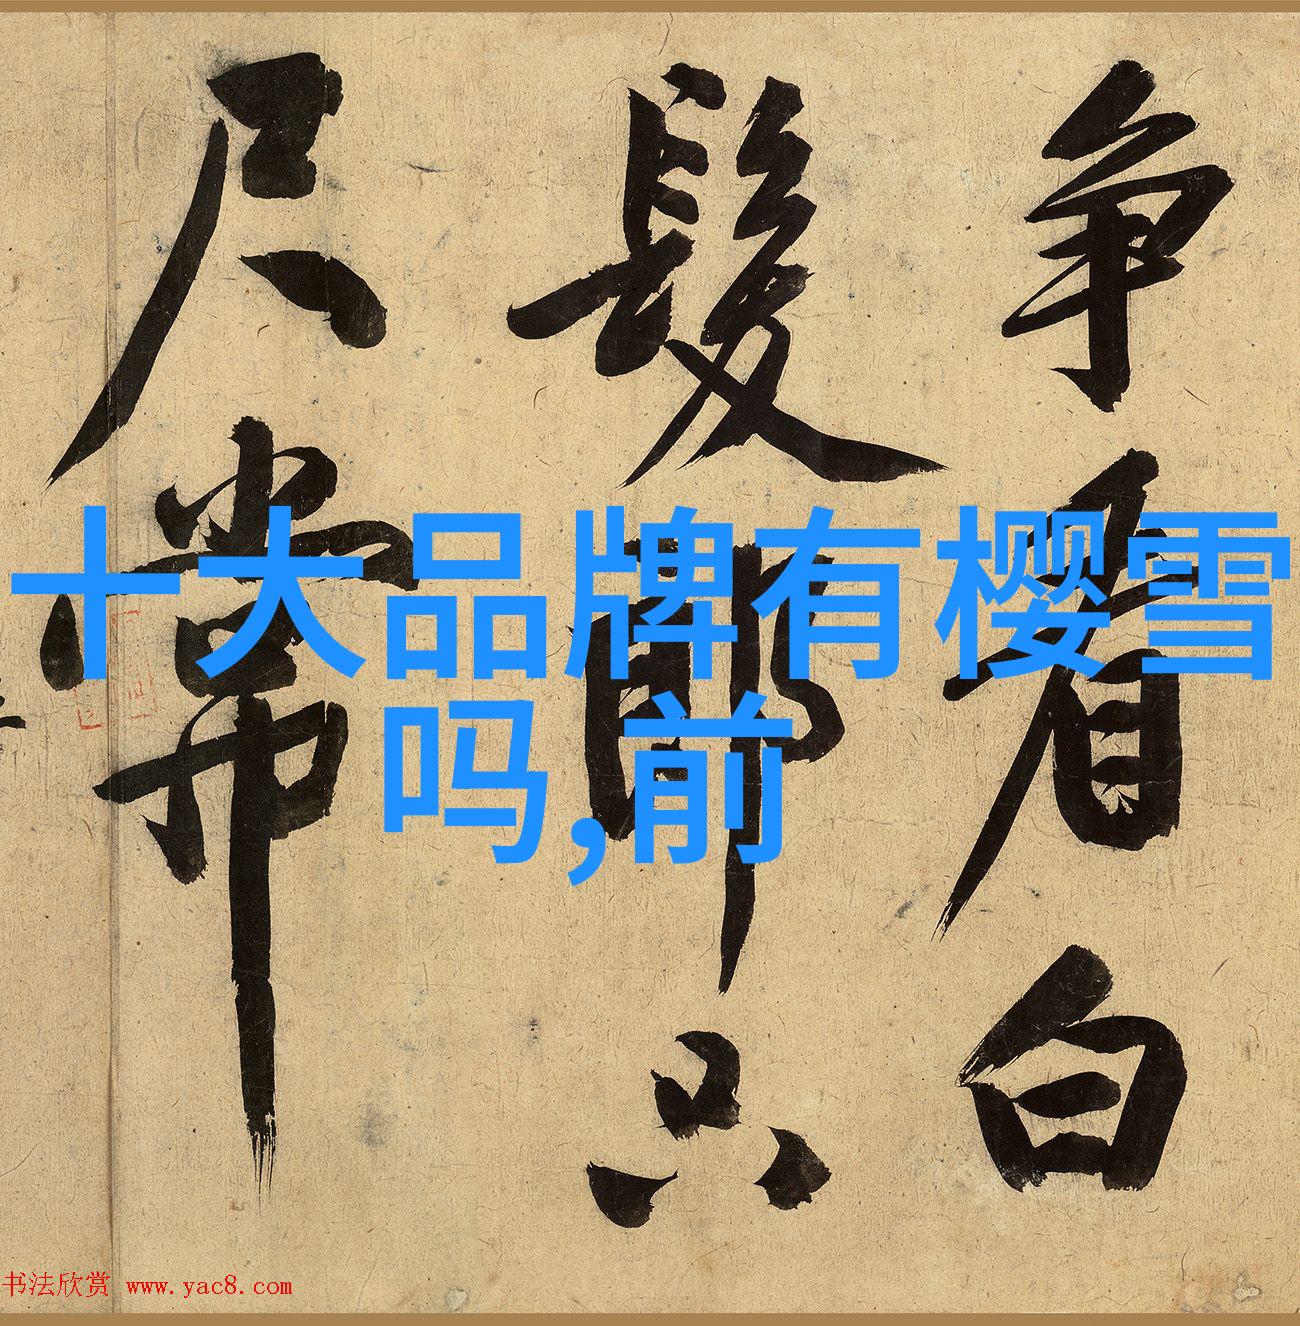 争看白
髮郎只
尺常
十大品牌有樱雪
吗,前
书法欣赏 www.yac8.com